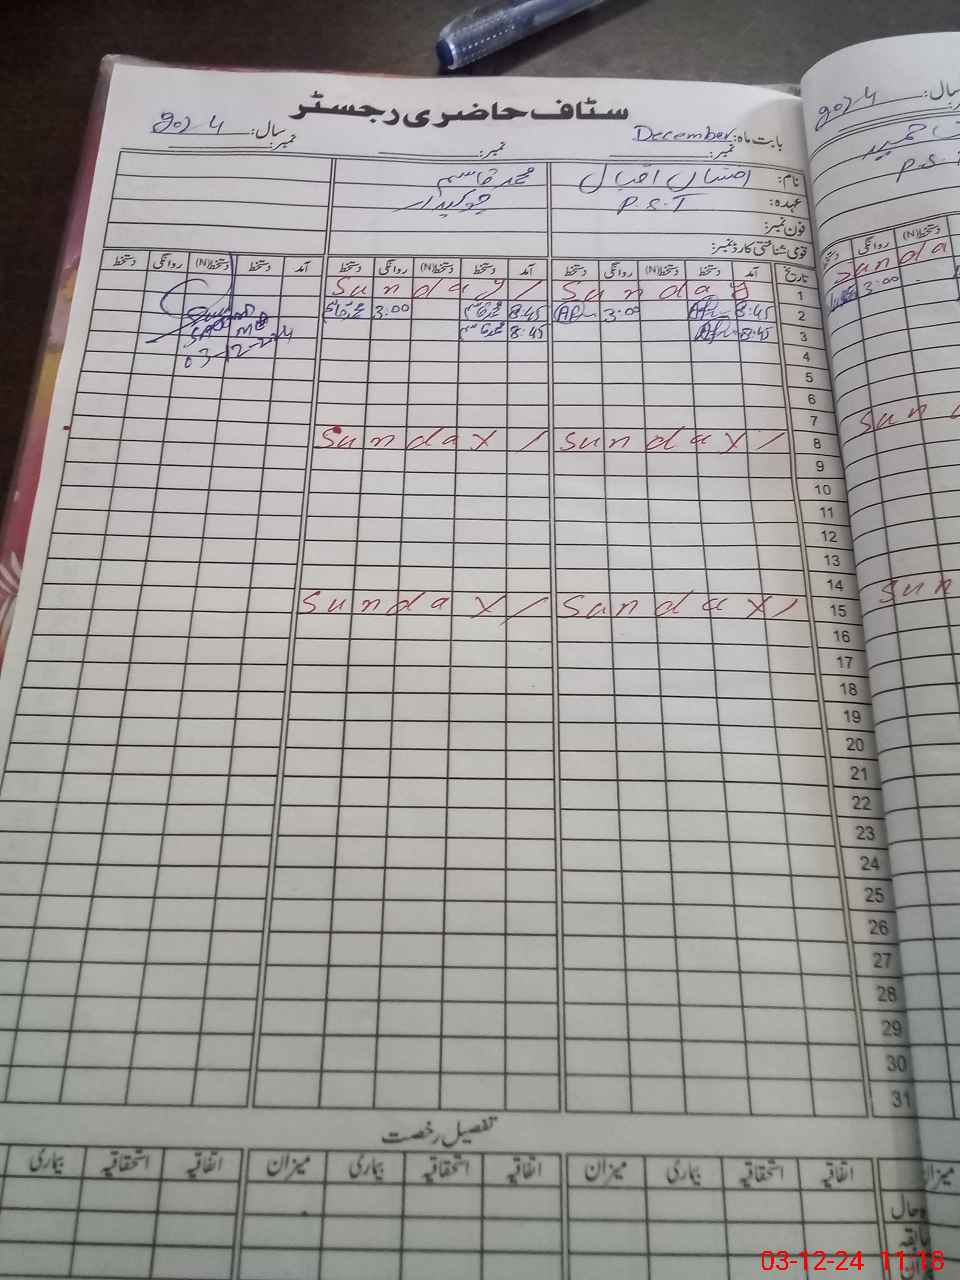 سٹاف حاضری رجسٹر
بابت ماہ: December سال: 2024
نمبر: نمبر: نمبر:
نام: افشاں اقبال محمد قاسم
عہدہ: P.S.T چوکیدار
فون نمبر:
قومی شناختی کارڈ نمبر:
تاریخ آمد دستخط دستخط(N) روانگی دستخط آمد دستخط دستخط(N) روانگی دستخط آمد دستخط دستخط(N) روانگی دستخط
1 Sunday Sunday
2 8:45 3:00 8:45 محمد قاسم 3:00 محمد قاسم
3 8:45 8:45 محمد قاسم
03-12-2024
4
5
6
7
8 Sunday Sunday
9
10
11
12
13
14
15 Sunday Sunday
16
17
18
19
20
21
22
23
24
25
26
27
28
29
30
31
تفصیل رخصت
اتفاقیہ استحقاقیہ بیماری میزان اتفاقیہ استحقاقیہ بیماری میزان اتفاقیہ استحقاقیہ بیماری
2024 سال:
P.S
دستخط(N) روانگی
Sunda
3:00
Sun
Sun
میزان
حال
03-12-24 11:18